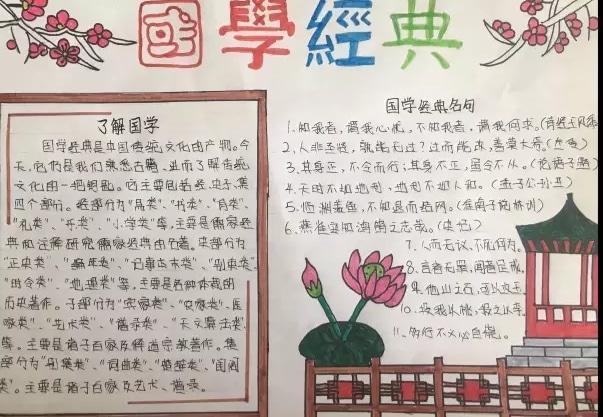 國學經典
了解国学
国学经典是中国传统文化的产物。今
天,它仍是我们熟悉古籍,进而了解传统
文化的一把钥匙。它主要包括经、史、子、集
四个部分。经部分为"易类"、"书类"、"诗类"、
"礼类"、"乐类"、"小学类"等,主要是儒家经
典和注解研究儒家经典的名著。史部分为
"正史类"、"编年类"、"纪事本末类"、"别史类"、
"时令类"、"地理类"等,主要是各种体裁的
历史著作。子部分为"儒家类"、"农家类"、"医
家类"、"艺术类"、"谱录类"、"天文算法类"
等。主要是诸子百家及释道宗教著作。集
部分为"别集类"、"词曲类"、"楚辞类"、"闺阁
类"。主要是诸子百家及艺术、谱录。
国学经典名句
1.知我者,谓我心忧,不知我者,谓我何求。(诗经王风
2.人非圣贤,孰能无过?过而能改,善莫大焉。
3.其身正,不令而行;其身不正,虽令不从。(论语子路)
4.天时不如地利,地利不如人和。(孟子公孙丑)
5.临渊羡鱼,不如退而结网。(淮南子说林训)
6.燕雀安知鸿鹄之志哉。(史记)
7.人而无仪,不死何为。
8.言者无罪,闻者足戒。
9.他山之石,可以攻玉。
10.投我以桃,报之以李。
11.多行不义必自毙。